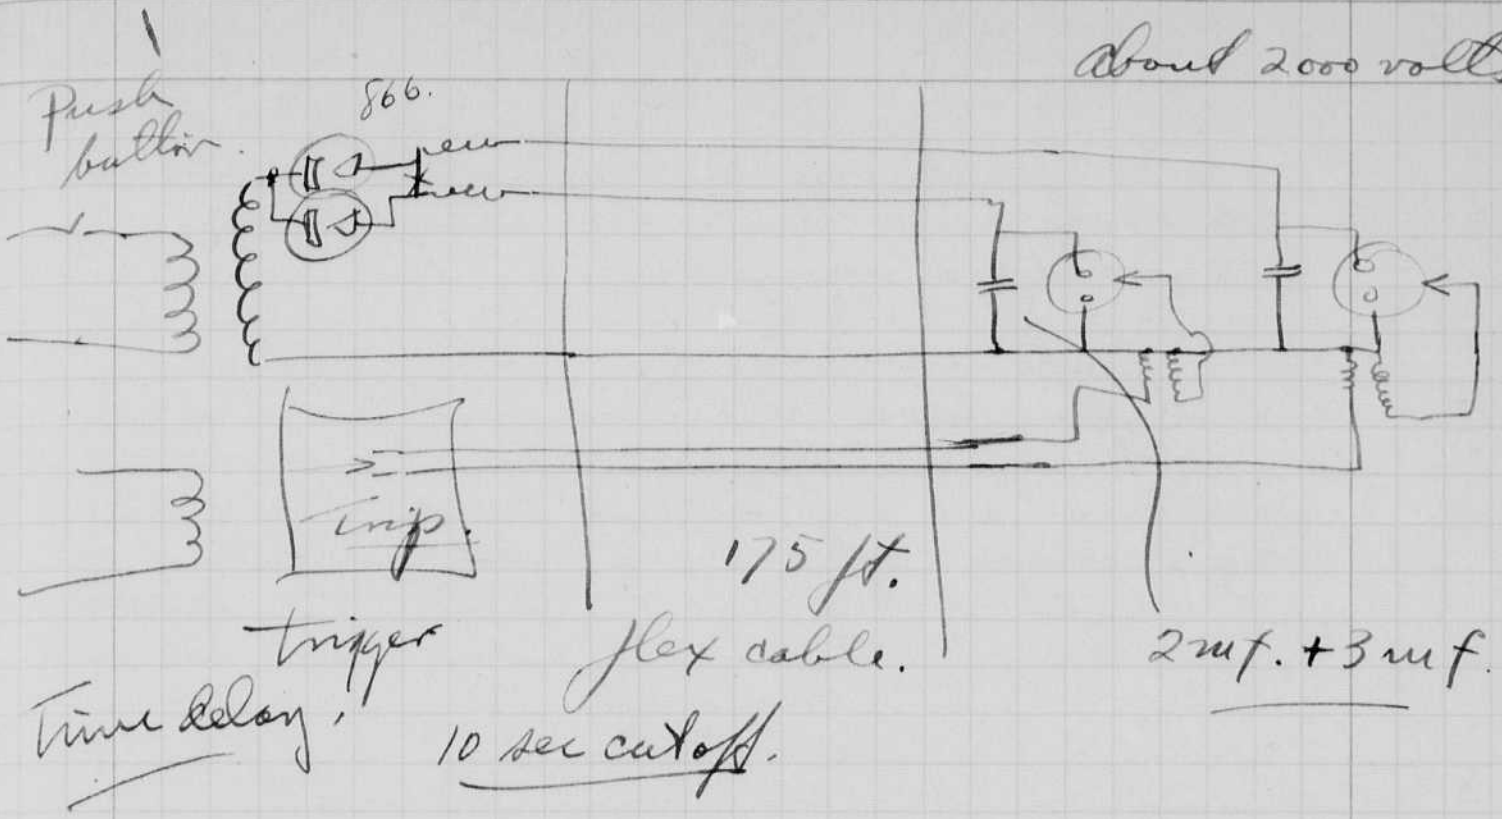 about 2000 volts
Push
button.
866.
Trip.
trigger
175 ft.
flex cable.
2 mf. + 3 mf.
Time delay.
10 sec cutoff.